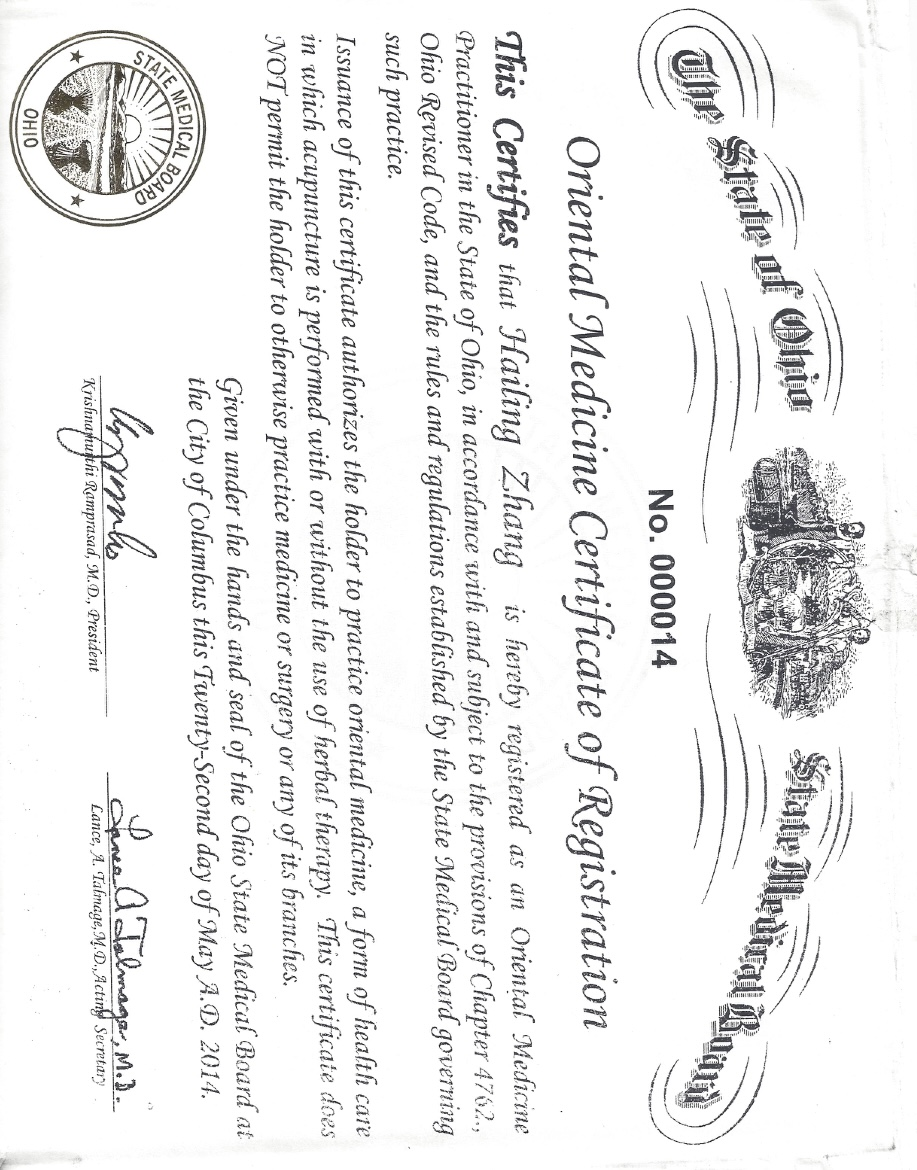 The State of Ohio
State Medical Board
No. 000014
Oriental Medicine Certificate of Registration
This Certifies that Hailing Zhang is hereby registered as an Oriental Medicine
Practitioner in the State of Ohio, in accordance with and subject to the provisions of Chapter 4762.,
Ohio Revised Code, and the rules and regulations established by the State Medical Board governing
such practice.
Issuance of this certificate authorizes the holder to practice oriental medicine, a form of health care
in which acupuncture is performed with or without the use of herbal therapy. This certificate does
NOT permit the holder to otherwise practice medicine or surgery or any of its branches.
Given under the hands and seal of the Ohio State Medical Board at
the City of Columbus this Twenty-Second day of May A.D. 2014.
STATE MEDICAL BOARD
OHIO
Krishnamurthi Ramprasad, M.D., President
Lance A Talmage, M.D.
Lance, A. Talmage,M.D.,Acting Secretary